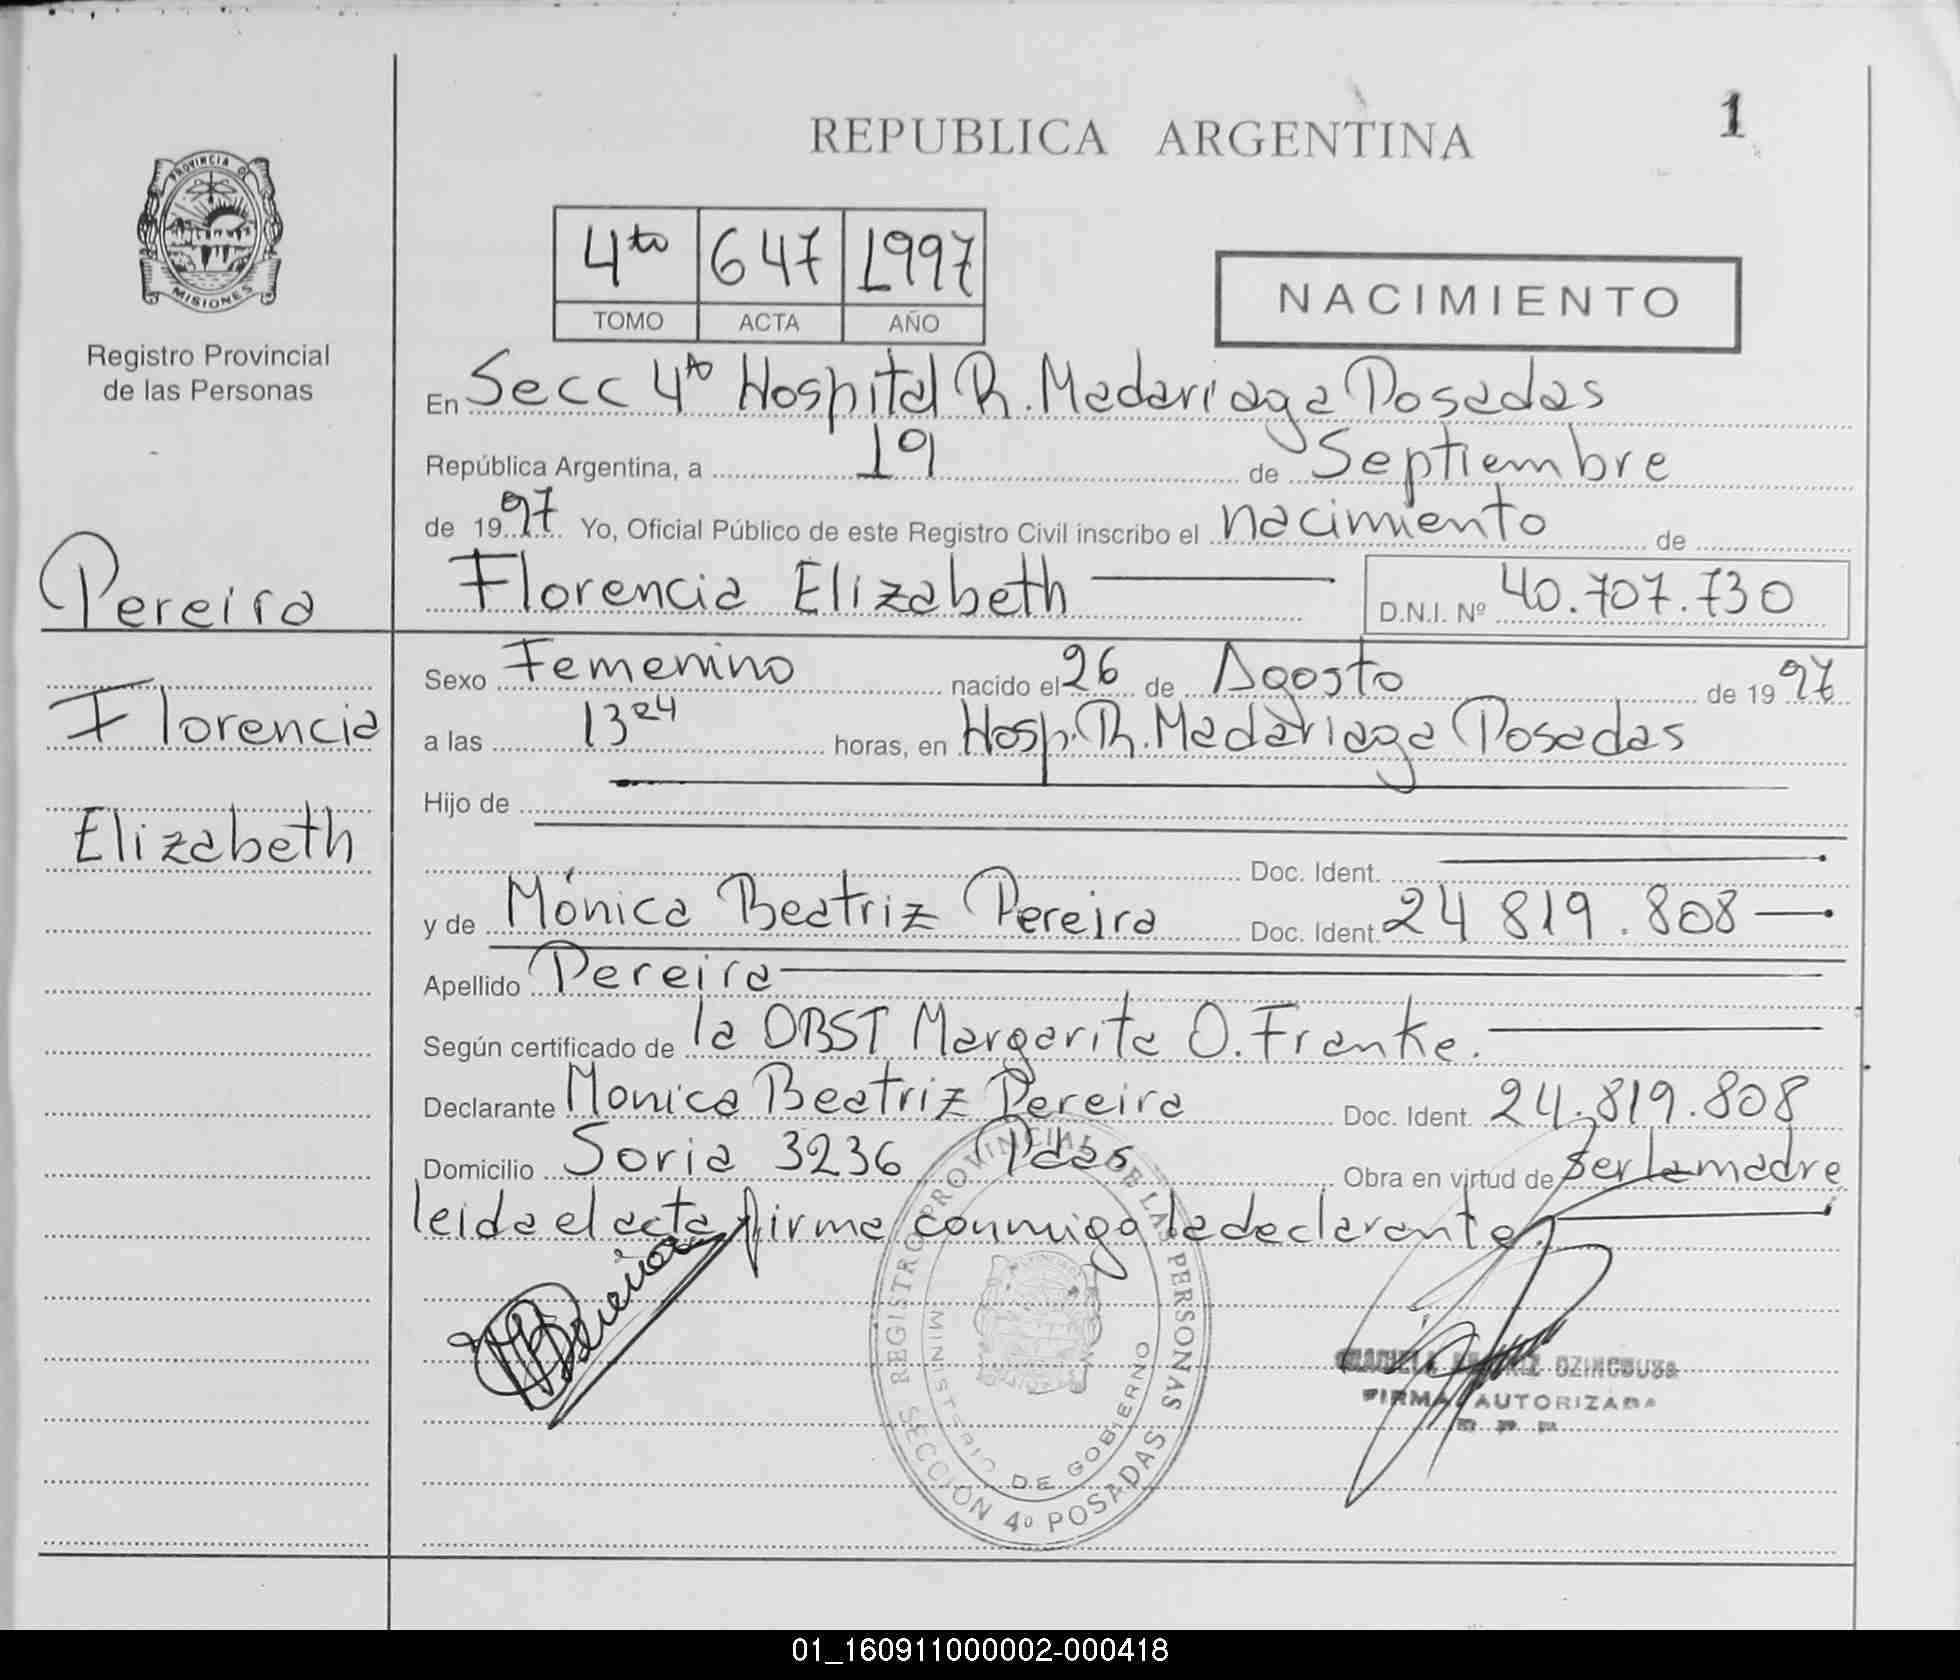 REPUBLICA ARGENTINA
1
PROVINCIA DE
MISIONES
Registro Provincial
de las Personas
4to 647 1997
TOMO ACTA AÑO
NACIMIENTO
En Secc 4to Hospital R. Madariaga Posadas
República Argentina, a 19 de Septiembre
de 1997 Yo, Oficial Público de este Registro Civil inscribo el nacimiento de
Florencia Elizabeth D.N.I. Nº 40.707.730
Pereira
Florencia
Elizabeth
Sexo Femenino nacido el 26 de Agosto de 1997
a las 13 24 horas, en Hosp. R. Madariaga Posadas
Hijo de
Doc. Ident.
y de Mónica Beatriz Pereira Doc. Ident. 24 819.808
Apellido Pereira
Según certificado de la OBST Margarita O. Franke.
Declarante Monica Beatriz Pereira Doc. Ident. 24.819.808
Domicilio Soria 3236 Pdas Obra en virtud de Ser la madre
leida el acta firma conmigo la declarante.
MBPereira
REGISTRO PROVINCIAL DE LAS PERSONAS
MINISTERIO DE GOBIERNO
SECCIÓN 4º POSADAS
FIRMA AUTORIZADA
01_160911000002-000418